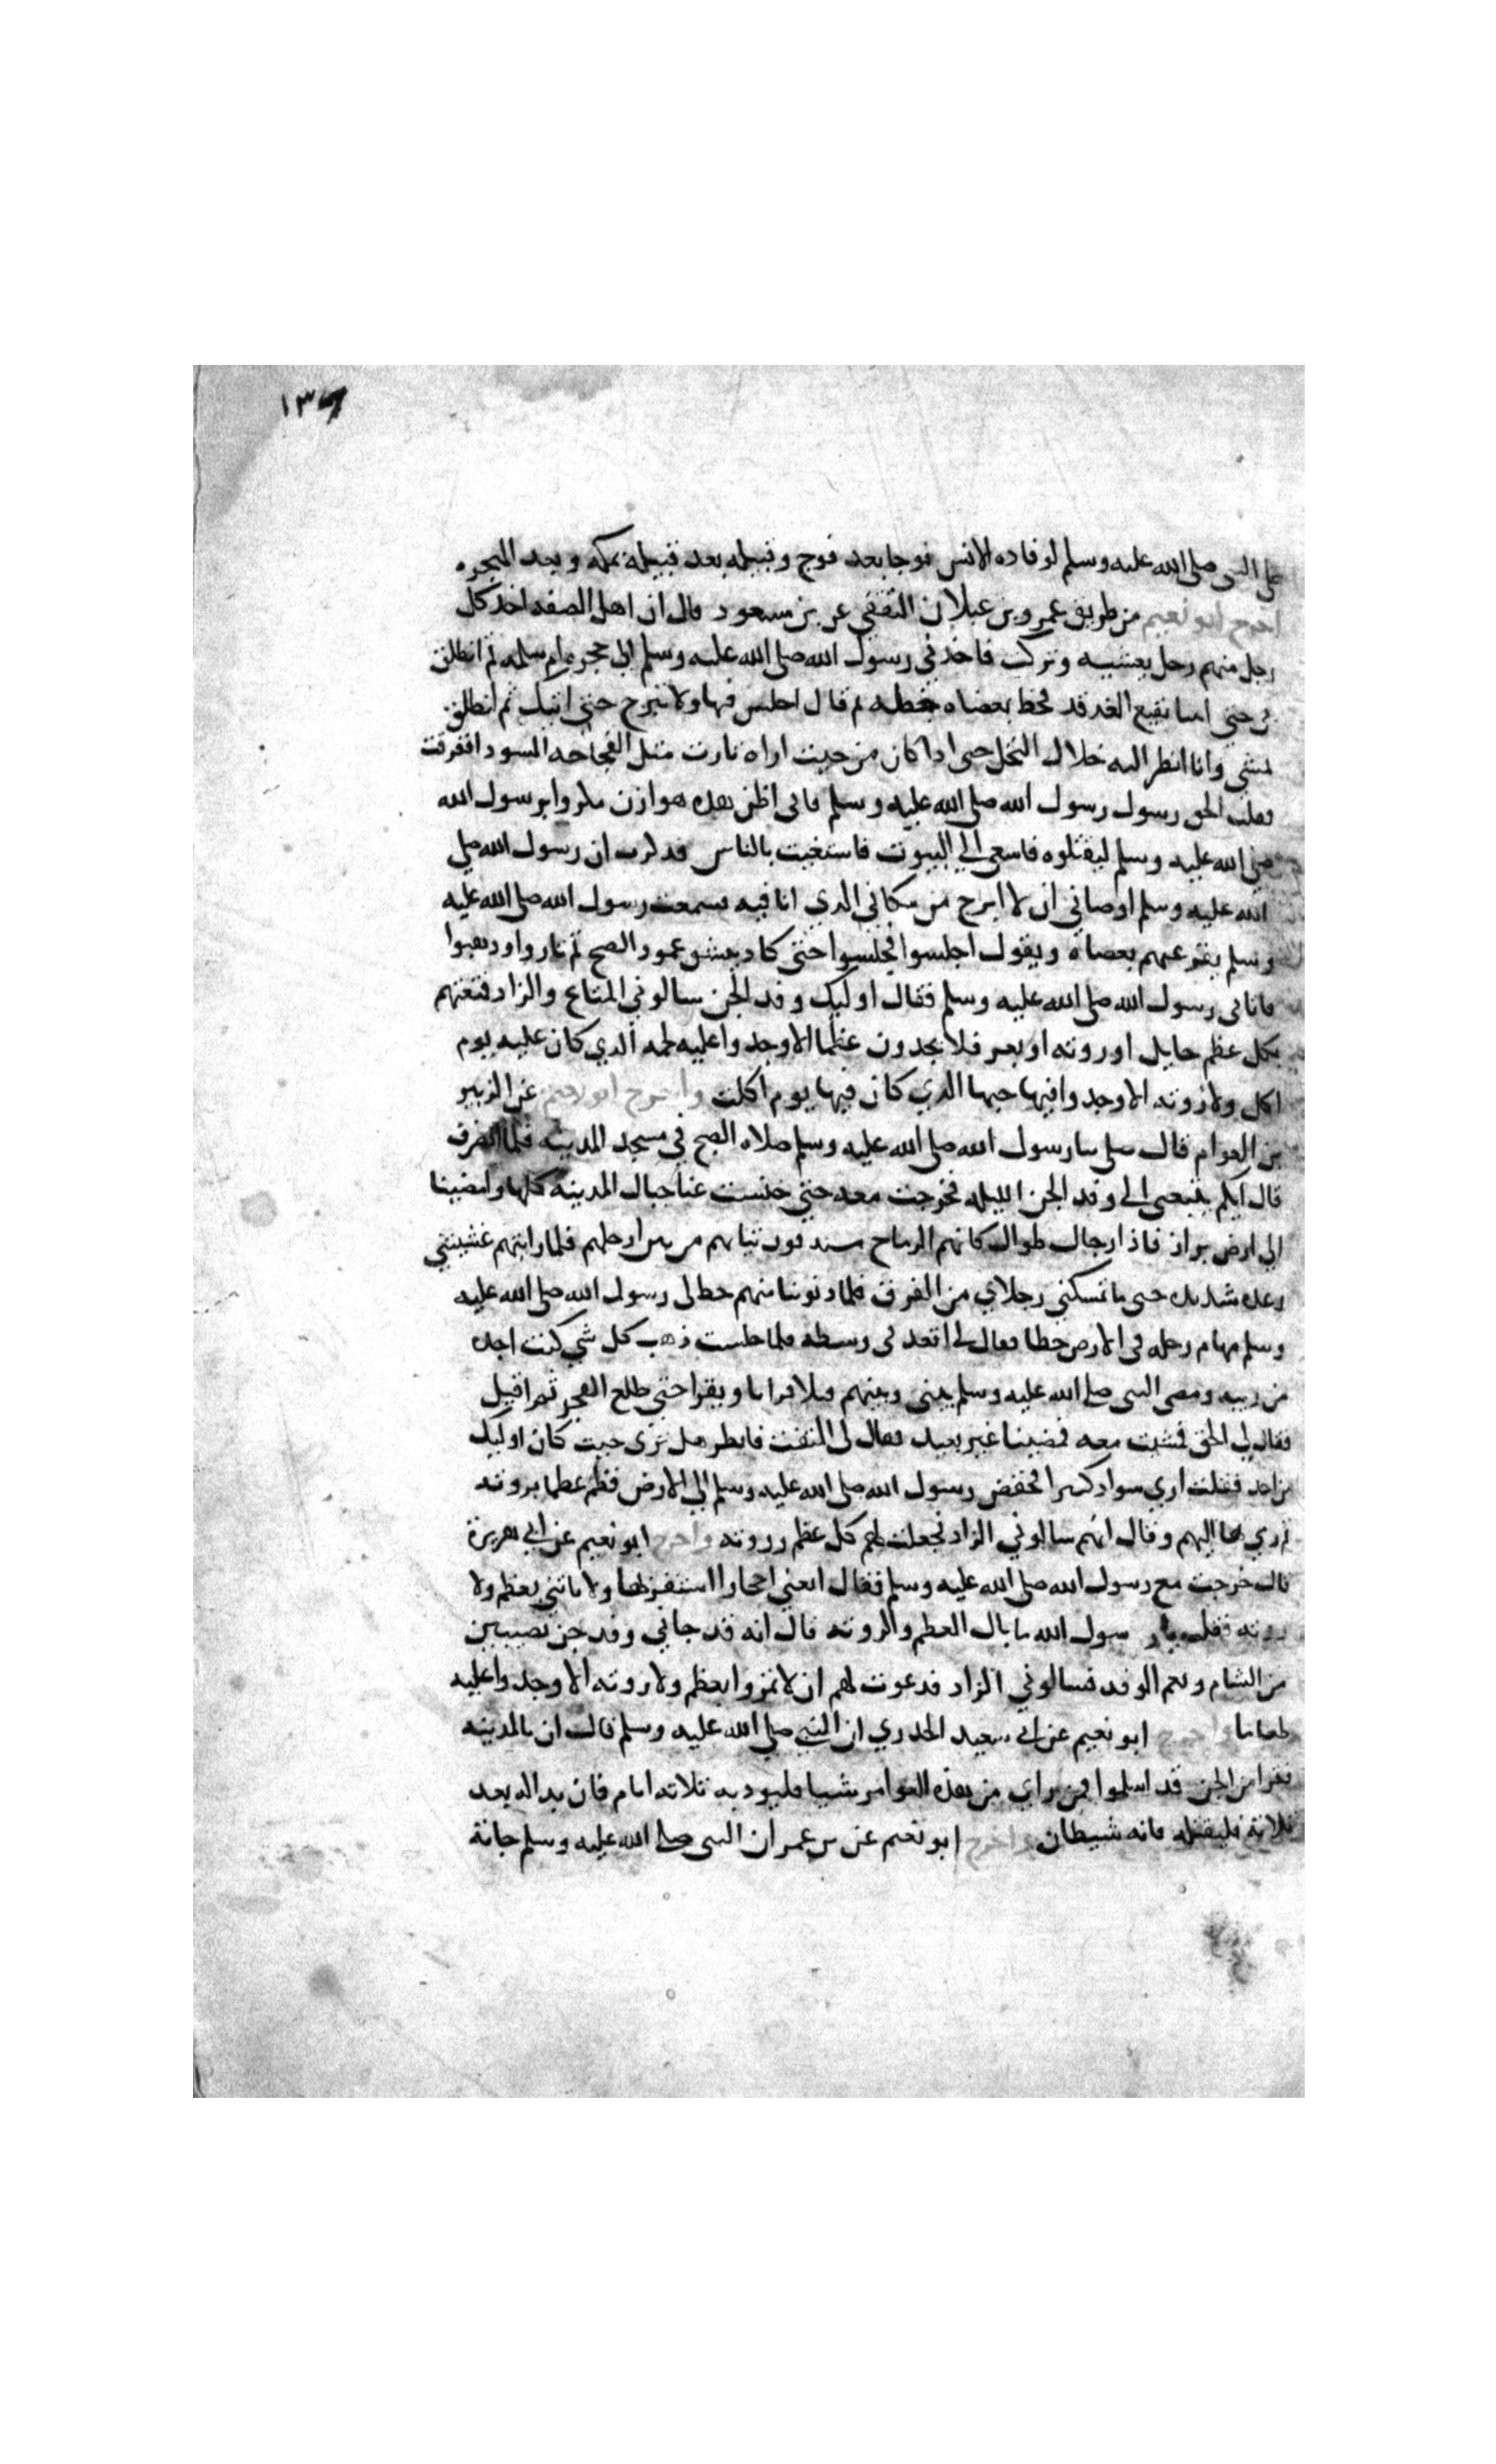 ١٣٧
على النبي صلى الله عليه وسلم لوفاده الانس فوجا بعد فوج وقبيله بعد قبيلة بمكه وبعد الهجره
اخرج ابو نعيم من طريق عمرو بن غيلان الثقفي عن بن مسعود قال ان اهل الصفه اخذ كل
رجل منهم رجل يعشيه وتركت فاخذني رسول الله صلى الله عليه وسلم الى حجره ام سلمه ثم انطلق
بي حتى اتينا بقيع الغرقد فخط بعصاه خطه ثم قال اجلس فيها ولا تبرح حتى اتيك ثم انطلق
يمشي وانا انظر اليه خلال النخل حتى اذا كان من حيث اراه ثارت مثل العجاجه السودا ففرقت
فقلت الحق رسول رسول الله صلى الله عليه وسلم فاني اظن هذه هوازن مكروا برسول الله
صلى الله عليه وسلم ليقتلوه فاسعى الى البيوت فاستغيث بالناس فذكرت ان رسول الله صلي
الله عليه وسلم اوصاني ان لا ابرح من مكاني الذي انا فيه فسمعت رسول الله صلى الله عليه
وسلم يقرعهم بعصاه ويقول اجلسوا فجلسوا حتى كاد ينشق عمود الصبح ثم ثاروا وذهبوا
فاتاني رسول الله صلى الله عليه وسلم فقال اوليك وفد الجن سالوني المتاع والزاد فمتعتهم
بكل عظم حايل او روثه او بعر فلا يجدون عظما الا وجدوا عليه لحمه الذي كان عليه يوم
اكل ولا روثه الا وجدوا فيها حبها الذي كان فيها يوم اكلت واخرج ابو نعيم عن الزبير
بن العوام قال صلى بنا رسول الله صلى الله عليه وسلم صلاه الصبح في مسجد المدينه فلما انصرف
قال ايكم يتبعني الى وفد الجن الليله فخرجت معه حتى خنست عنا جبال المدينه كلها وافضينا
الي ارض براز فاذا رجال طوال كانهم الرماح مستدفرون ثيابهم من بين ارجلهم فلما رايتهم غشيتني
رعده شديده حتى ما تمسكني رجلاي من الفرق فلما دنونا منهم خط لى رسول الله صلى الله عليه
وسلم بابهام رجله في الارض خطا فقال لي اقعد في وسطه فلما جلست ذهب كل شي كنت اجده
من ريبه ومضى النبي صلى الله عليه وسلم بيني وبينهم فتلا قرانا ويقرا حتى طلع الفجر ثم اقبل
فقال لي الحق فمشيت معه فمضينا غير بعيد فقال لى التفت فانظر هل ترى حيث كان اوليك
من احد فقلت اري سوادا كثيرا فخفض رسول الله صلى الله عليه وسلم الي الارض فنظم عظما بروثه
ثم رمي بها اليهم وقال انهم سالوني الزاد فجعلت لهم كل عظم وروثه واخرج ابو نعيم عن ابي هريرة
قال خرجت مع رسول الله صلى الله عليه وسلم فقال ابغني احجارا استنفر بها ولا تاتني بعظم ولا
روثه فقلت يا رسول الله ما بال العظم والروثه قال انه قد جاني وفد جن نصيبين
من الشام ونعم الوفد فسالوني الزاد فدعوت لهم ان لا يمروا بعظم ولا روثه الا وجدوا عليه
طعاما واخرج ابو نعيم عن ابي سعيد الخدري ان النبي صلي الله عليه وسلم قال ان بالمدينه
نفرا من الجن قد اسلموا فمن راي من هذه العوامر شييا فليوذنه ثلاثه ايام فان بدا له بعد
ثلاثة فليقتله فانه شيطان واخرج ابو نعيم عن بن عمر ان النبي صلى الله عليه وسلم جاته